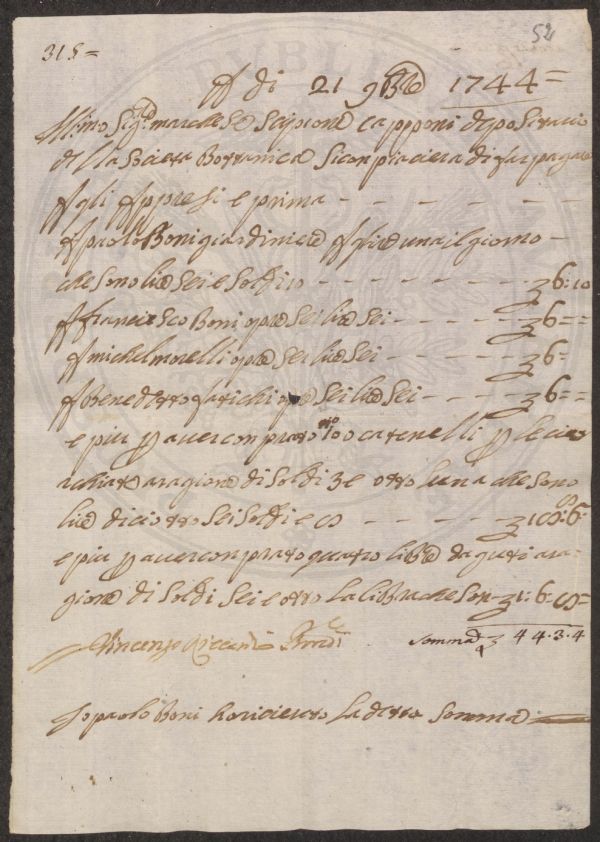 52
315=
A di 21 9bre 1744=
Ill:mo Sig:r marchese Scipione Capponi depositario
della Società Bottanica si conpiacierà di far pagare
A gli Appresi e prima - - - - -
A paolo Boni giardiniere A lire una il giorno -
che sono lire sei e soldi 10 - - - - - 6:10
A francesco Boni opre sei lire sei - - - - 6==
A michel morelli opre sei lire sei - - - - 6=
A Benedetto opre sei lire sei - - - - 6==
e piu p aver conprato no 100 catenelli p le
a ragione di soldi 3 e otto l'una che sono
lire diciotto sei soldi e 8 - - - - 18:6:8
e piu p aver conprato quatro libre d aguti a ra-
gione di soldi sei e otto la libra che son - 1:6:8=
Vincenzo
Somma 44.3.4
Io paolo Boni ho ricieuto la detta Somma